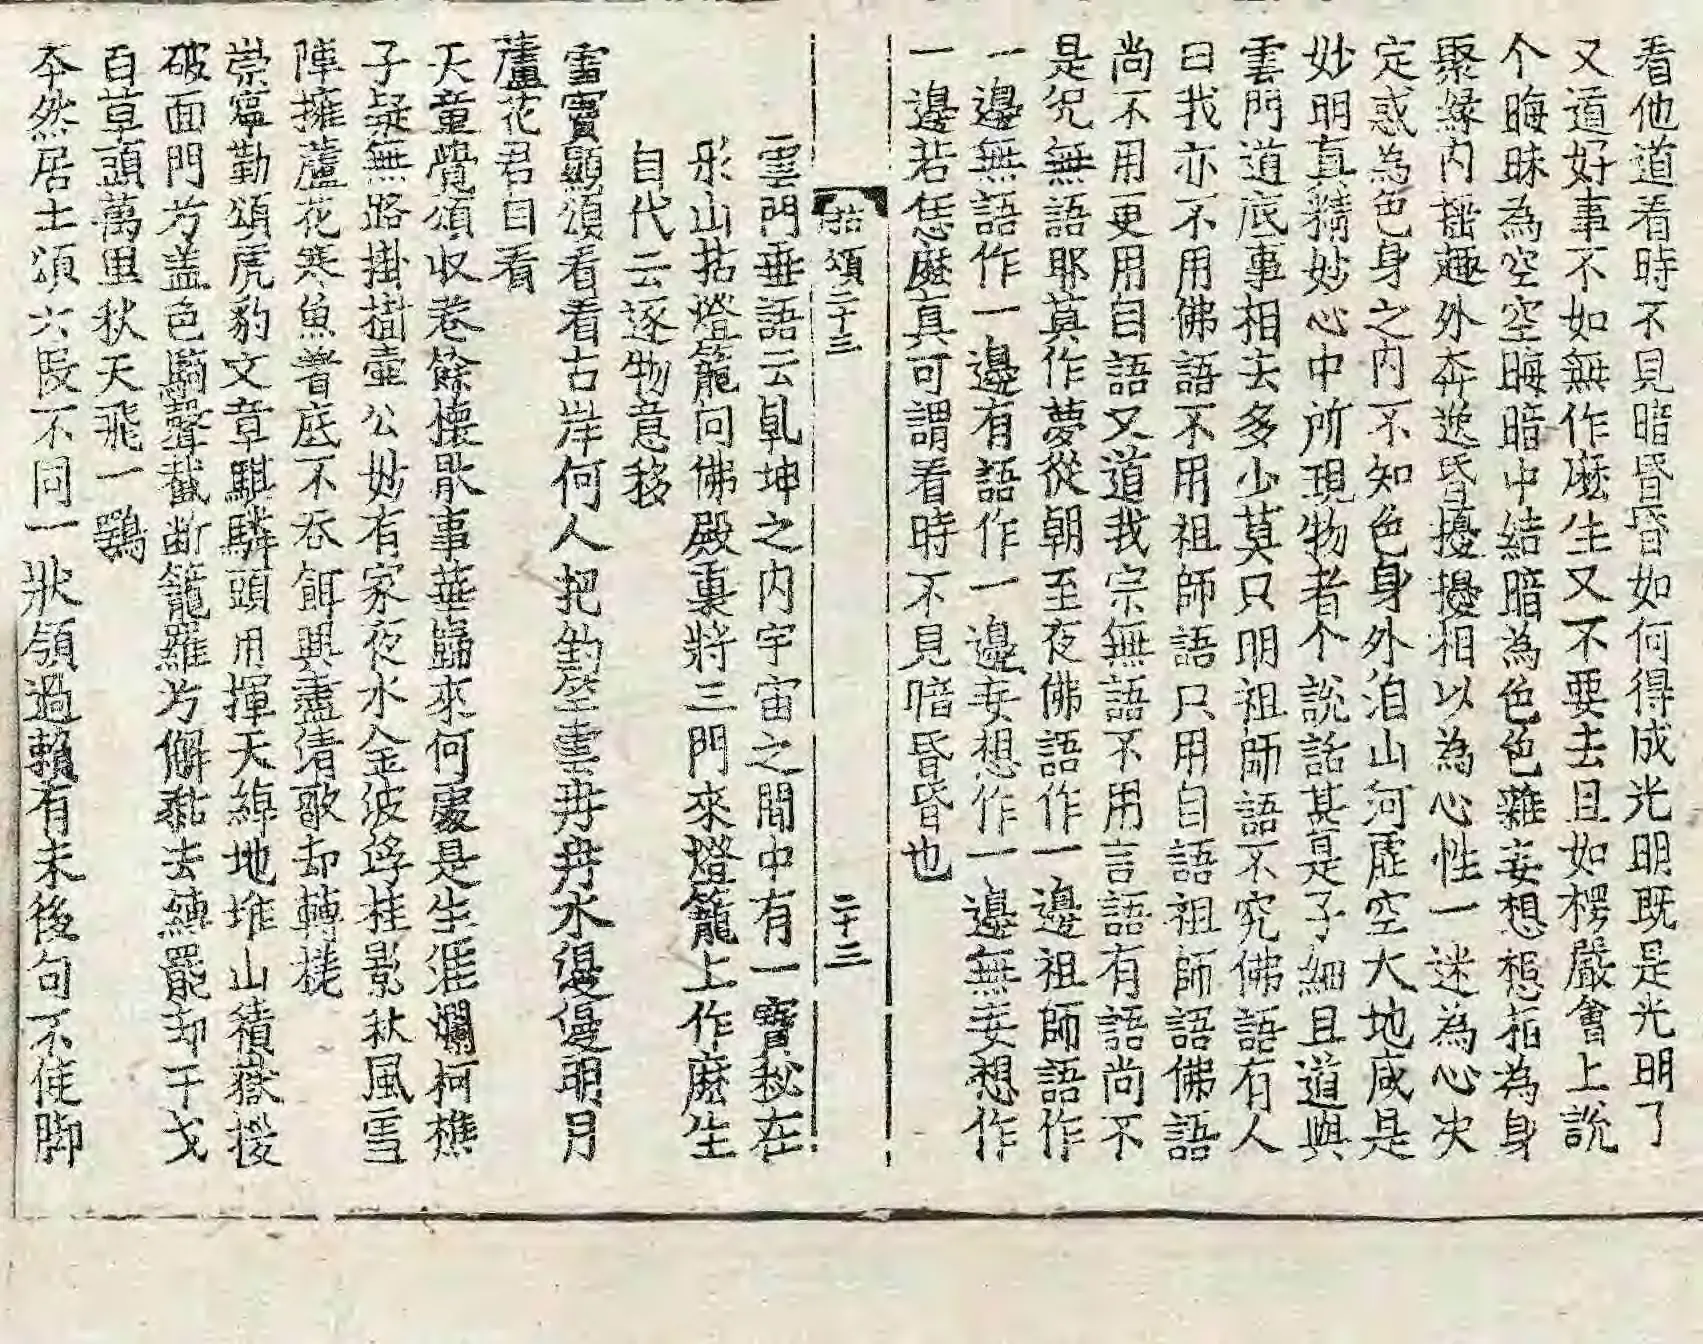 看他道看時不見暗昏昏如何得成光明既是光明了
又道好事不如無作麽生又不要去且如楞嚴會上說
个晦昧為空空晦暗中結暗為色色雜妄想想相為身
聚縁內搖趣外奔逸昏擾擾相以為心性一迷為心决
定惑為色身之內不知色身外洎山河虛空大地咸是
妙明真精妙心中所現物者个說話甚是子細且道與
雲門道底事相去多少莫只明祖師語不究佛語有人
曰我亦不用佛語不用祖師語只用自語祖師語佛語
尚不用更用自語又道我宗無語不用言語有語尚不
是况無語耶莫作夢從朝至夜佛語作一邊祖師語作
一邊無語作一邊有語作一邊妄想作一邊無妄想作
一邊若恁麽真可謂看時不見暗昏昏也
拈頌二十三 二十三
雲門垂語云乹坤之內宇宙之間中有一寶秘在
形山拈燈籠向佛殿裏將三門來燈籠上作麽生
自代云逐物意移
雪竇顯頌看看看古岸何人把釣竿雲冉冉水漫漫明月
蘆花君自看
天童覺頌收卷餘懷猒事華歸來何處是生涯爛柯樵
子疑無路掛樹壷公妙有家夜水金波浮桂影秋風雪
陣擁蘆花寒魚着底不吞餌興盡清歌却轉槎
崇寧勤頌虎豹文章騏驎頭用揮天綽地堆山積嶽援
破面門方盖色騎聲截断籠羅方解黏去縛罷却干戈
百草頭萬里秋天飛一鶚
夲然居士頌六叚不同一狀領過賴有末後句不使脚